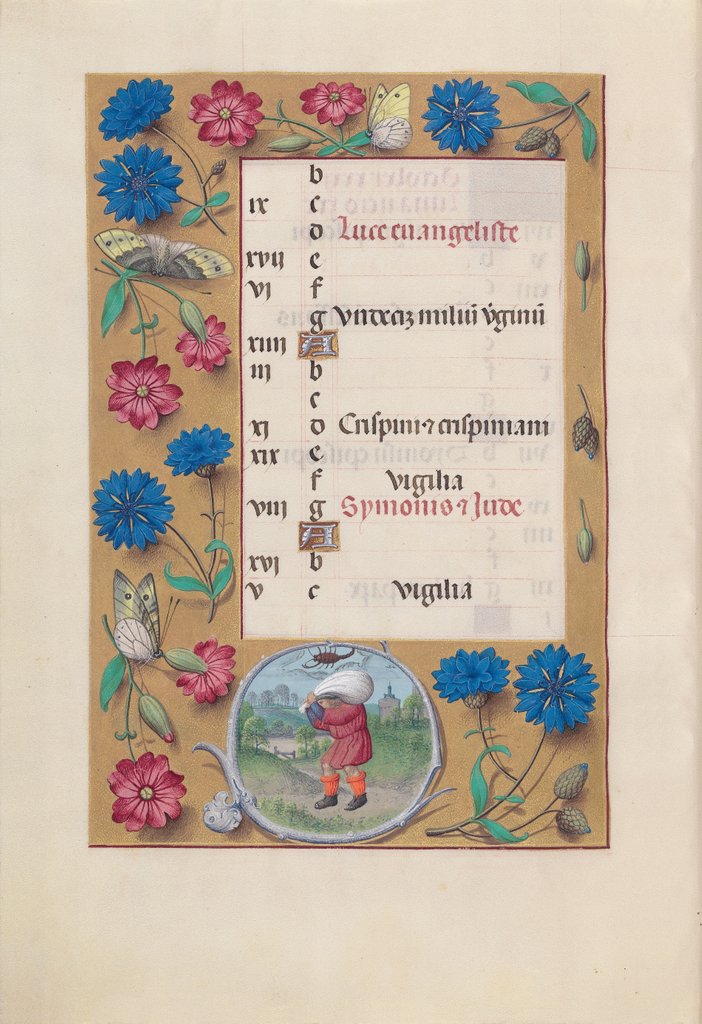 b
ix c
d Luce euangeliste
xvij e
vj f
g Vndeciz miliũ v̾ginũ
xiiij A
iij b
c
xj d Crispini ⁊ crispiniani
xix e
f vigilia
viij g Symonis ⁊ Jude
A
xvj b
v c vigilia